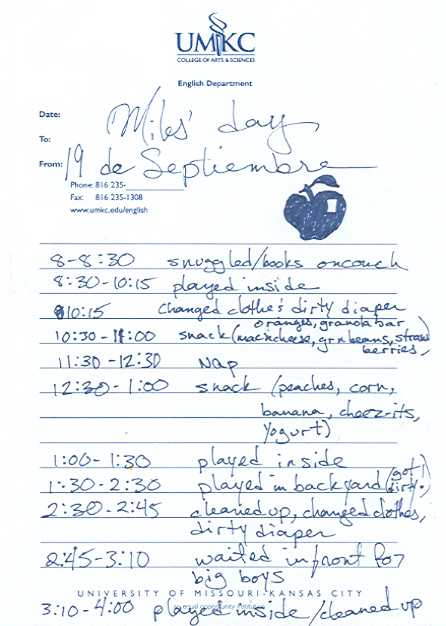 UMKC
COLLEGE OF ARTS & SCIENCES
English Department
Date:
Miles' day
To:
From: 19 de Septiembre
Phone: 816 235-
Fax: 816 235-1308
www.umkc.edu/english
8-8:30 snuggled/books on couch
8:30-10:15 played inside
10:15 changed clothes dirty diaper
oranges, granola bar
10:30-11:00 snack (mac n cheese, grn beans, straw
berries,
11:30-12:30 Nap
12:30-1:00 snack (peaches, corn,
banana, cheez-its,
yogurt)
1:00-1:30 played inside
1:30-2:30 played in backyard (got dirty!)
2:30-2:45 cleaned up, changed clothes,
dirty diaper
2:45-3:10 waited in front for
big boys
UNIVERSITY OF MISSOURI-KANSAS CITY
an equal opportunity institution
3:10-4:00 played inside/cleaned up